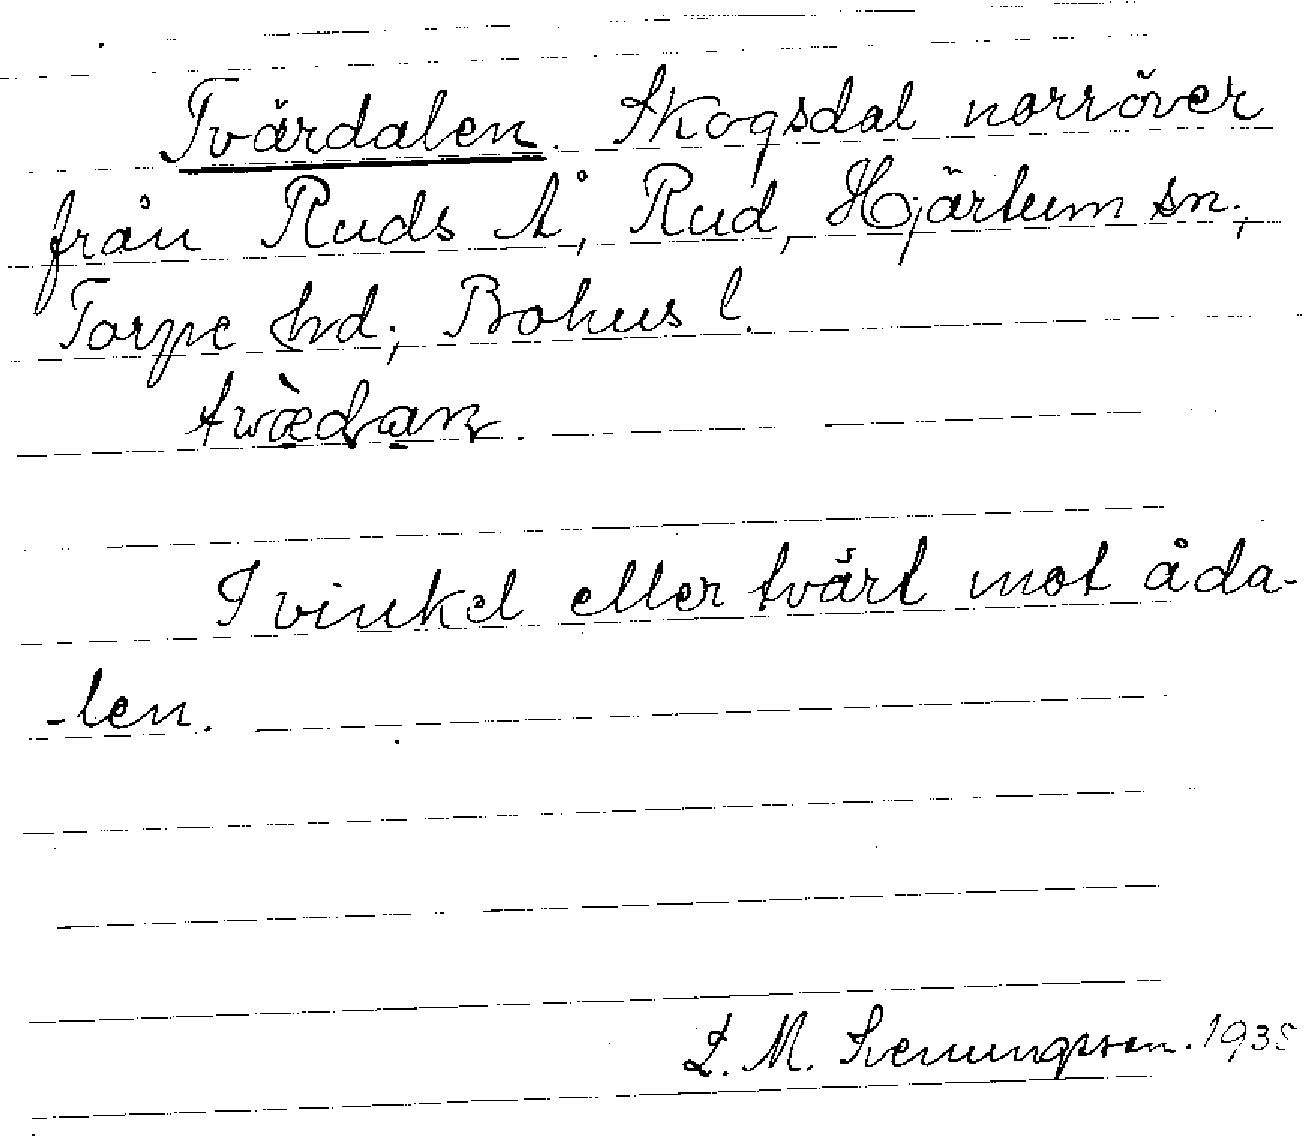 Tvärdalen. Skogsdal norröver
från Ruds Å, Rud, Hjärtum sn.,
Torpe hd, Bohus l.
I vinkel eller tvärt mot åda-
-len.
L. M. Svenungsson. 1935